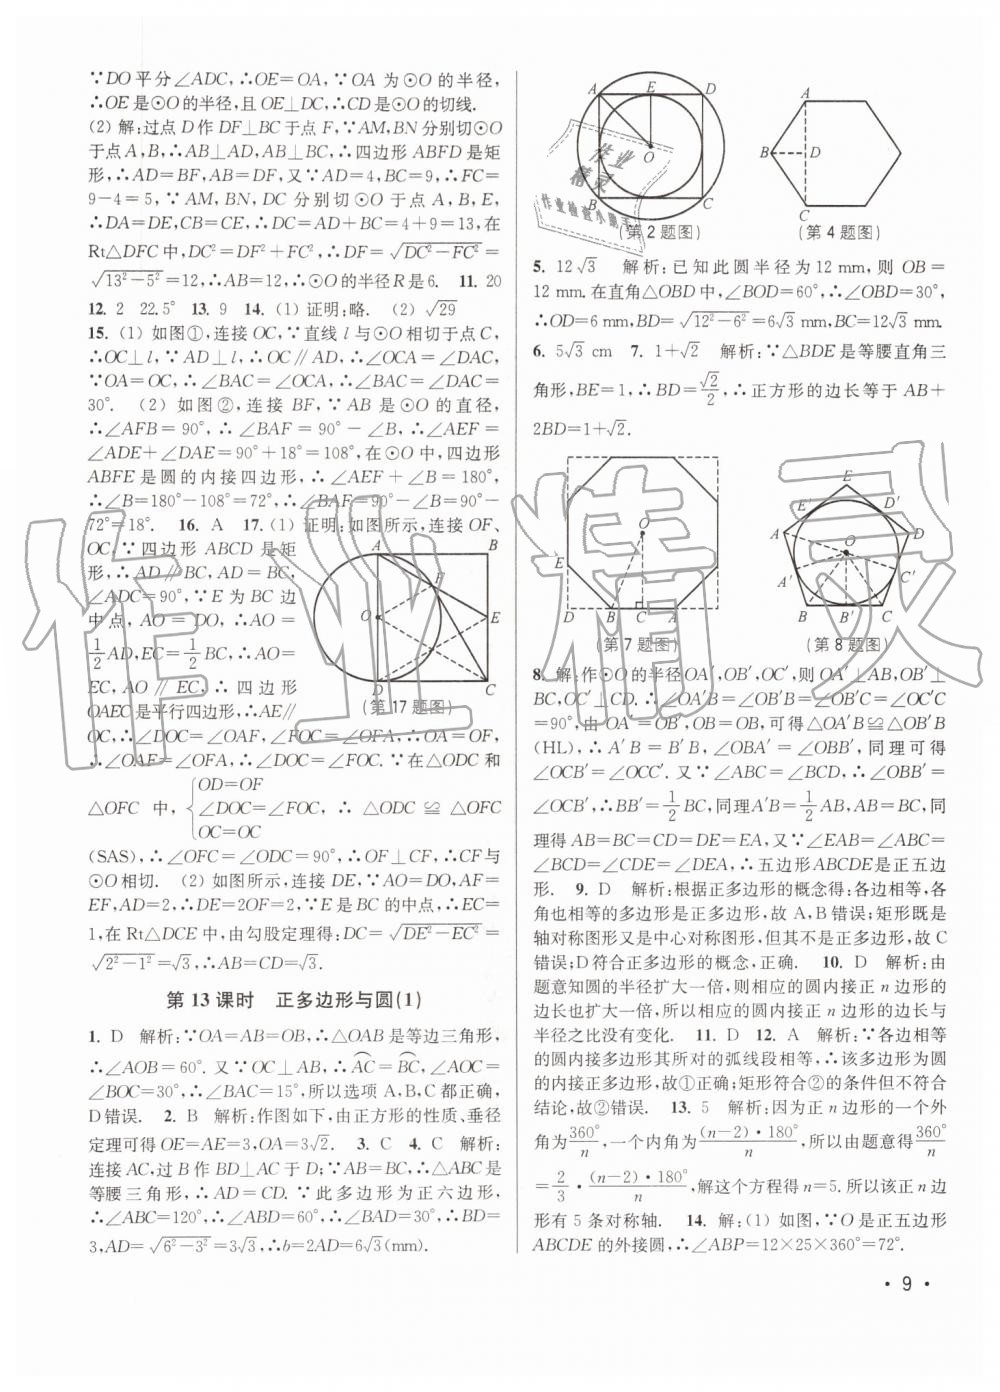 ∵DO平分∠ADC,∴OE=OA,∵OA为⊙O的半径,
∴OE是⊙O的半径,且OE⊥DC,∴CD是⊙O的切线.
(2) 解:过点D作DF⊥BC于点F,∵AM,BN分别切⊙O
于点A,B,∴AB⊥AD,AB⊥BC,∴四边形ABFD是矩
形,∴AD=BF,AB=DF,又∵AD=4,BC=9,∴FC=
9-4=5,∵AM,BN,DC分别切⊙O于点A,B,E,
∴DA=DE,CB=CE,∴DC=AD+BC=4+9=13,在
Rt△DFC中,DC²=DF²+FC²,∴DF=√(DC²-FC²)=
√(13²-5²)=12,∴AB=12,∴⊙O的半径R是6. 11. 20
12. 2 22.5° 13. 9 14. (1) 证明:略. (2) √29
15. (1) 如图①,连接OC,∵直线l与⊙O相切于点C,
∴OC⊥l,∵AD⊥l,∴OC∥AD,∴∠OCA=∠DAC,
∵OA=OC,∴∠BAC=∠OCA,∴∠BAC=∠DAC=
30°. (2) 如图②,连接BF,∵AB是⊙O的直径,
∴∠AFB=90°,∴∠BAF=90°-∠B,∴∠AEF=
∠ADE+∠DAE=90°+18°=108°,在⊙O中,四边形
ABFE是圆的内接四边形,∴∠AEF+∠B=180°,
∴∠B=180°-108°=72°,∴∠BAF=90°-∠B=90°-
72°=18°. 16. A 17. (1) 证明:如图所示,连接OF、
OC,∵四边形ABCD是矩
形,∴AD∥BC,AD=BC,
∠ADC=90°,∵E为BC边
中点,AO=DO,∴AO=
1/2AD,EC=1/2BC,∴AO=
EC,AO∥EC,∴四边形
OAEC是平行四边形,∴AE∥
OC,∴∠DOC=∠OAF,∠FOC=∠OFA,∵OA=OF,
∴∠OAF=∠OFA,∴∠DOC=∠FOC.∵在△ODC和
△OFC中,{OD=OF
∠DOC=∠FOC,
OC=OC
∴△ODC≌△OFC
(SAS),∴∠OFC=∠ODC=90°,∴OF⊥CF,∴CF与
⊙O相切. (2) 如图所示,连接DE,∵AO=DO,AF=
EF,AD=2,∴DE=2OF=2,∵E是BC的中点,∴EC=
1,在Rt△DCE中,由勾股定理得:DC=√(DE²-EC²)=
√(2²-1²)=√3,∴AB=CD=√3.
A
B
F
O
E
D
C
(第17题图)
第13课时 正多边形与圆(1)
1. D 解析:∵OA=AB=OB,∴△OAB是等边三角形,
∴∠AOB=60°.又∵OC⊥AB,∴AC⌒=BC⌒,∠AOC=
∠BOC=30°,∴∠BAC=15°,所以选项A,B,C都正确,
D错误. 2. B 解析:作图如下,由正方形的性质、垂径
定理可得OE=AE=3,OA=3√2. 3. C 4. C 解析:
连接AC,过B作BD⊥AC于D;∵AB=BC,∴△ABC是
等腰三角形,∴AD=CD.∵此多边形为正六边形,
∴∠ABC=120°,∴∠ABD=60°,∴∠BAD=30°,∴BD=
3,AD=√(6²-3²)=3√3,∴b=2AD=6√3(mm).
A
E
D
O
B
C
(第2题图)
A
B
D
C
(第4题图)
5. 12√3 解析:已知此圆半径为12 mm,则OB=
12 mm.在直角△OBD中,∠BOD=60°,∴∠OBD=30°,
∴OD=6 mm,BD=√(12²-6²)=6√3 mm,BC=12√3 mm.
6. 5√3 cm 7. 1+√2 解析:∵△BDE是等腰直角三
角形,BE=1,∴BD=√2/2,∴正方形的边长等于AB+
2BD=1+√2.
O
E
D
B
C
A
(第7题图)
E
E′
D′
A
D
O
A′
C′
B
B′
C
(第8题图)
8. 解:作⊙O的半径OA′,OB′,OC′,则OA′⊥AB,OB′⊥
BC,OC′⊥CD.∴∠OA′B=∠OB′B=∠OB′C=∠OC′C
=90°,由OA′=OB′,OB=OB,可得△OA′B≌△OB′B
(HL),∴A′B=B′B,∠OBA′=∠OBB′,同理可得
∠OCB′=∠OCC′.又∵∠ABC=∠BCD,∴∠OBB′=
∠OCB′,∴BB′=1/2BC,同理A′B=1/2AB,AB=BC,同
理得AB=BC=CD=DE=EA,又∵∠EAB=∠ABC=
∠BCD=∠CDE=∠DEA,∴五边形ABCDE是正五边
形. 9. D 解析:根据正多边形的概念得:各边相等,各
角也相等的多边形是正多边形,故A,B错误;矩形既是
轴对称图形又是中心对称图形,但其不是正多边形,故C
错误;D符合正多边形的概念,正确. 10. D 解析:由
题意知圆的半径扩大一倍,则相应的圆内接正n边形的
边长也扩大一倍,所以相应的圆内接正n边形的边长与
半径之比没有变化. 11. D 12. A 解析:∵各边相等
的圆内接多边形其所对的弧线段相等,∴该多边形为圆
的内接正多边形,故①正确;矩形符合②的条件但不符合
结论,故②错误. 13. 5 解析:因为正n边形的一个外
角为360°/n,一个内角为(n-2)•180°/n,所以由题意得360°/n
=2/3•(n-2)•180°/n,解这个方程得n=5.所以该正n边
形有5条对称轴. 14. 解:(1) 如图,∵O是正五边形
ABCDE的外接圆,∴∠ABP=12×25×360°=72°.
• 9 •
作业
精灵
作业检查小助手
作业精灵